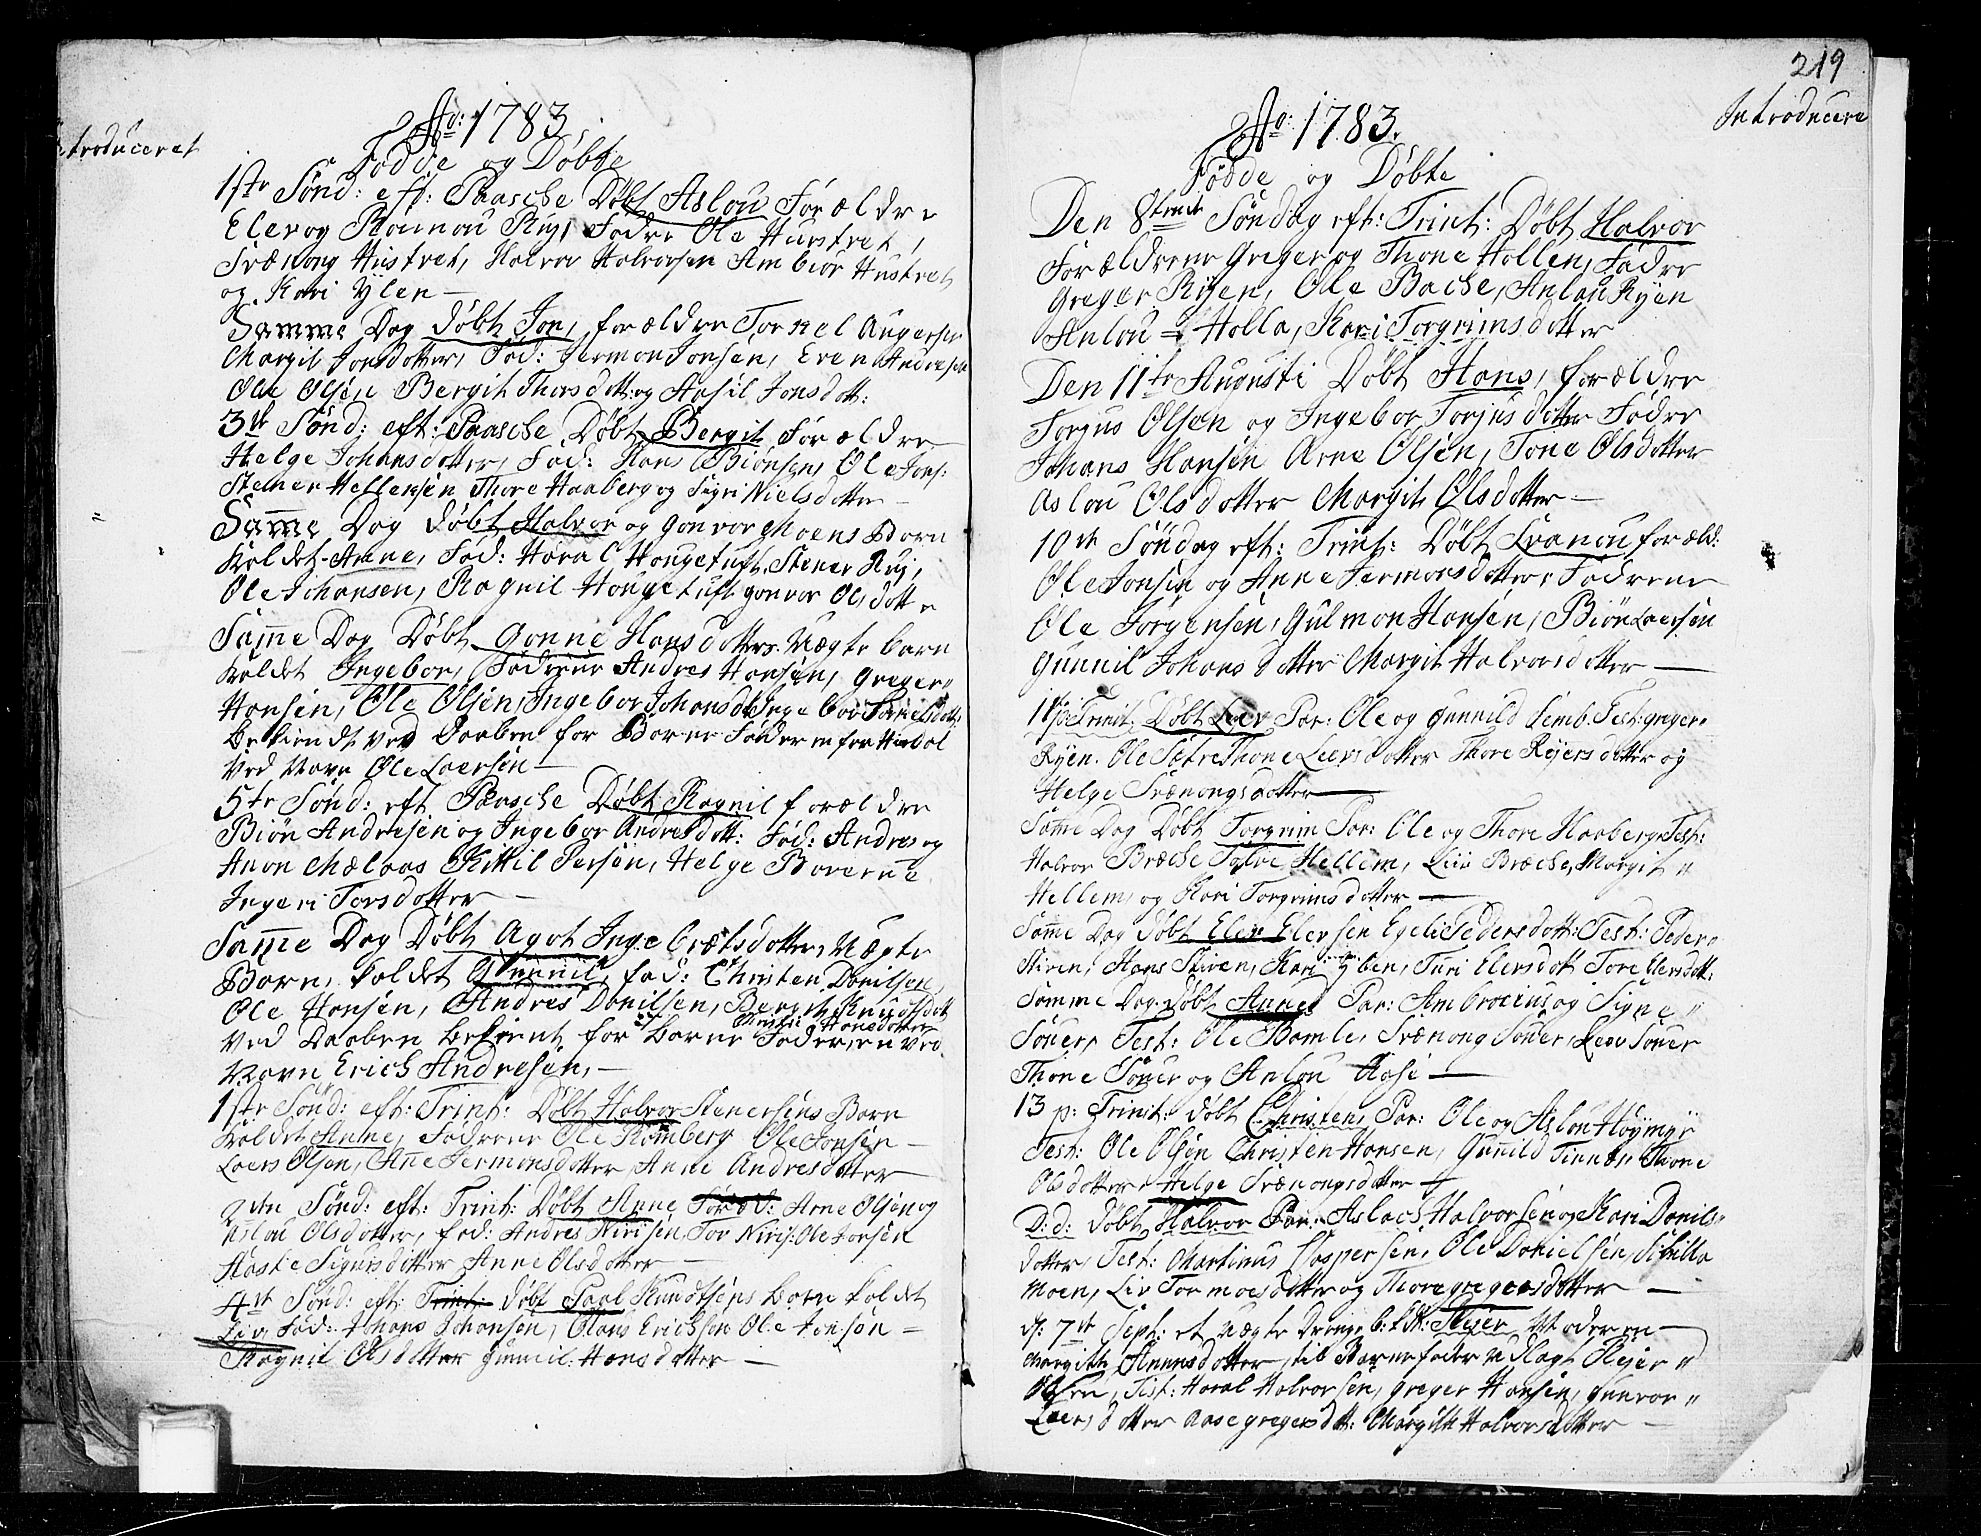 troduceret
Ao: 1783,
Fødde og Døbte
1ste Sønd: eft: Paasche Døbt Aslou Forældre
Elev og Rounou Ruy, Fadre Ole Hustret,
Svænong Hustret, Halvor Halvorsen Ambior Hustret
og Kari Ylen —
Samme Dag døbt Jon, forældre Torkel Augersen
Margit Jonsdotter, Fad: Jermon Jonsen, Even Andresen
Ole Olsen Bergit Thorsdott: og Aasil Jonsdott:
3de Sønd: eft: Paasche Døbt Bergit Forældre
Helge Johansdotter, Fad: Hans Biønsen, Ole Jons:
Stener Hellensen Thore Haaberg og Sigri Nielsdotter —
Samme Dag døbt Halvor og Gonvor Moens Born
Koldet Anne, Fad: Haral Hougetuft, Stener Ruj,
Ole Johansen, Ragnil Hougetuft gonvor Olsdotter
Samme Dag Døbt Gonne Hansdotters Uægte barn
koldet Ingebor, Fadrene Andres Hansen, Greger
Hansen, Ole Olsen, Ingebor Johansd: Ingebor
Bekiendt ved Daaben for Barne Fader
Ved Navn Ole Laersen —
5te Sønd: eft Paasche Døbt Ragnil forældre
Biøn Andresen og Ingebor Andresdott: Fad: Andres og
Anon Mælaas Kittil Persen, Helge Boverne
Ingeri Torsdotter —
Samme Dag Døbt Agot Ingebrætsdotter, Uægte
Barn, koldet Gunnil, fad: Christen Danilsen,
Ole Hansen, Andres Danilsen, Bergit Knudsdott
Christi Hansdotter
Ved Daaben bekient for Barne Fader, en ved
Navn Erich Andresen, —
1ste Sønd: eft: Trint: Døbt Halvor Stenersens Barn
Koldet Anne, Fadrene Ole Romberg Ole Jonsen —
Laers Olsen, Anne Jermonsdotter, Anne Andresdotter
2den Sønd: eft: Trint: Døbt Anne Foræl: Arne Olsen og
Aslou Olsdotter, fad: Andres Nirisen Tor Niris: Ole Jonsen
Aaste Sigursdotter Anne Olsdotter —
4de Sønd: eft: Trint: døbt Paal Knudtsens barn koldet
Liv, Fad: Johans Johansen, Clans Erichsen Ole Jonsen —
Ragnil Olsdotter gunnil: Hansdotter —
219
Introducere
Ao: 1783.
Fødde og Døbte
Den 8tende Søndag eft: Trint: Døbt Halvor
Forældrene Greger og Thone Hollen, Fadre
Greger Ryen, Ole Bache, Anlau Ryen
Anlou Holla, Kari Torgrimsdotter
Den 11te Augusti Døbt Hans, forældre
Torgus Olsen og Ingebor Torjusdotter Fadre
Johans Hansen Arne Olsen, Tone Olsdotter
Aslou Olsdotter Margit Olsdotter —
10de Søndag eft: Trint: Døbt Svanou foræld:
Ole Jonsen og Anne Jermonsdotter, Fadrene
Ole Jørgensen, Gulmon Hansen, Biøn Laersen
Gunnil Johansdotter Margit Halvorsdotter —
11 p: Trinit: Døbt Leev Par: Ole og Gunnild Semb. Test: greger
Ryen. Ole Sætre Thone Leersdotter Thore Reyersdotter og
Helge Svænongsdotter —
Samme Dag Døbt Torgrim Par: Ole og Thore Haaberg Test:
Halvor Bræche Salve Hellem, Liv Bræche, Margit
Hellem, og Kari Torgrimsdotter —
Samme Dag døbt Elev Elevsen Egelie Pedersdott: Test: Peder
Stiren, Hans Stiren, Kari Yben, Turi Elersdott Tore Elersdott:
Samme Dag døbt Anne Par: Ambrocius og Signe
Søuer, Test: Ole Bamle, Svænong Søuer, Leev Søuer
Thone Søuer og Anlou Aase —
13 p: Trinit: døbt Christen, Par: Ole og Aslou Høymyr
Test: Ole Olsen Christen Hansen, Gunnild Tinnes, Thone
Olsdotter, Helge Svænongsdotter —
D: d: døbt Halvor Par: Aslach Halvorsen og Kari Danils
dotter, Test: Martinus Caspersen, Ole Danielsen, Sibilla
Moen, Liv Tormoesdotter og Thore gregersdotter —
d: 7de Sept: et Uægte Drenge b: k: Reyer Moderen
Margithe Annesdotter, til Barnefader udlagt Reyer
Olsen, Test: Haral Halvorsen, Greger Hansen, Gunvor
Laersdotter Aase gregersdott: Margitt Halvorsdotter —